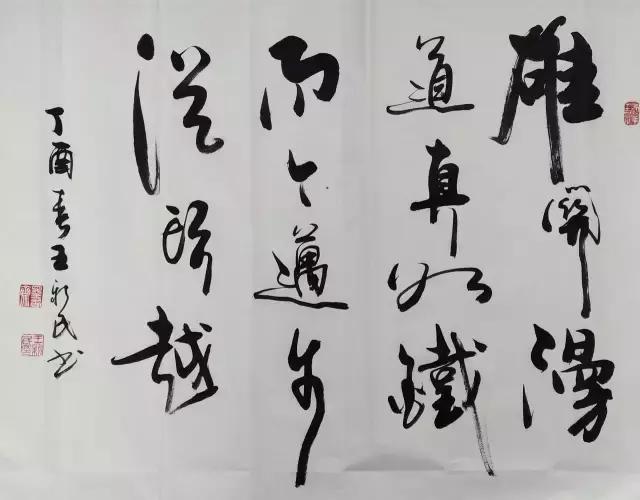 雄關漫
道真如鐵
而今邁步
從頭越
丁酉春王新民书